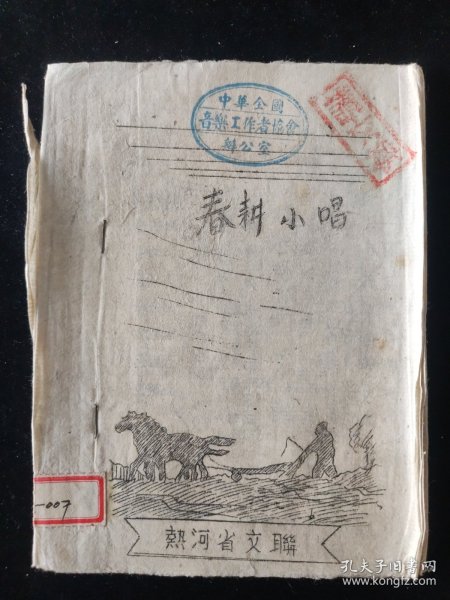 中華全國
音樂工作者協會
辦公室
春耕小唱
-007
熱河省文聯
孔夫子旧书网
www.kongfz.com